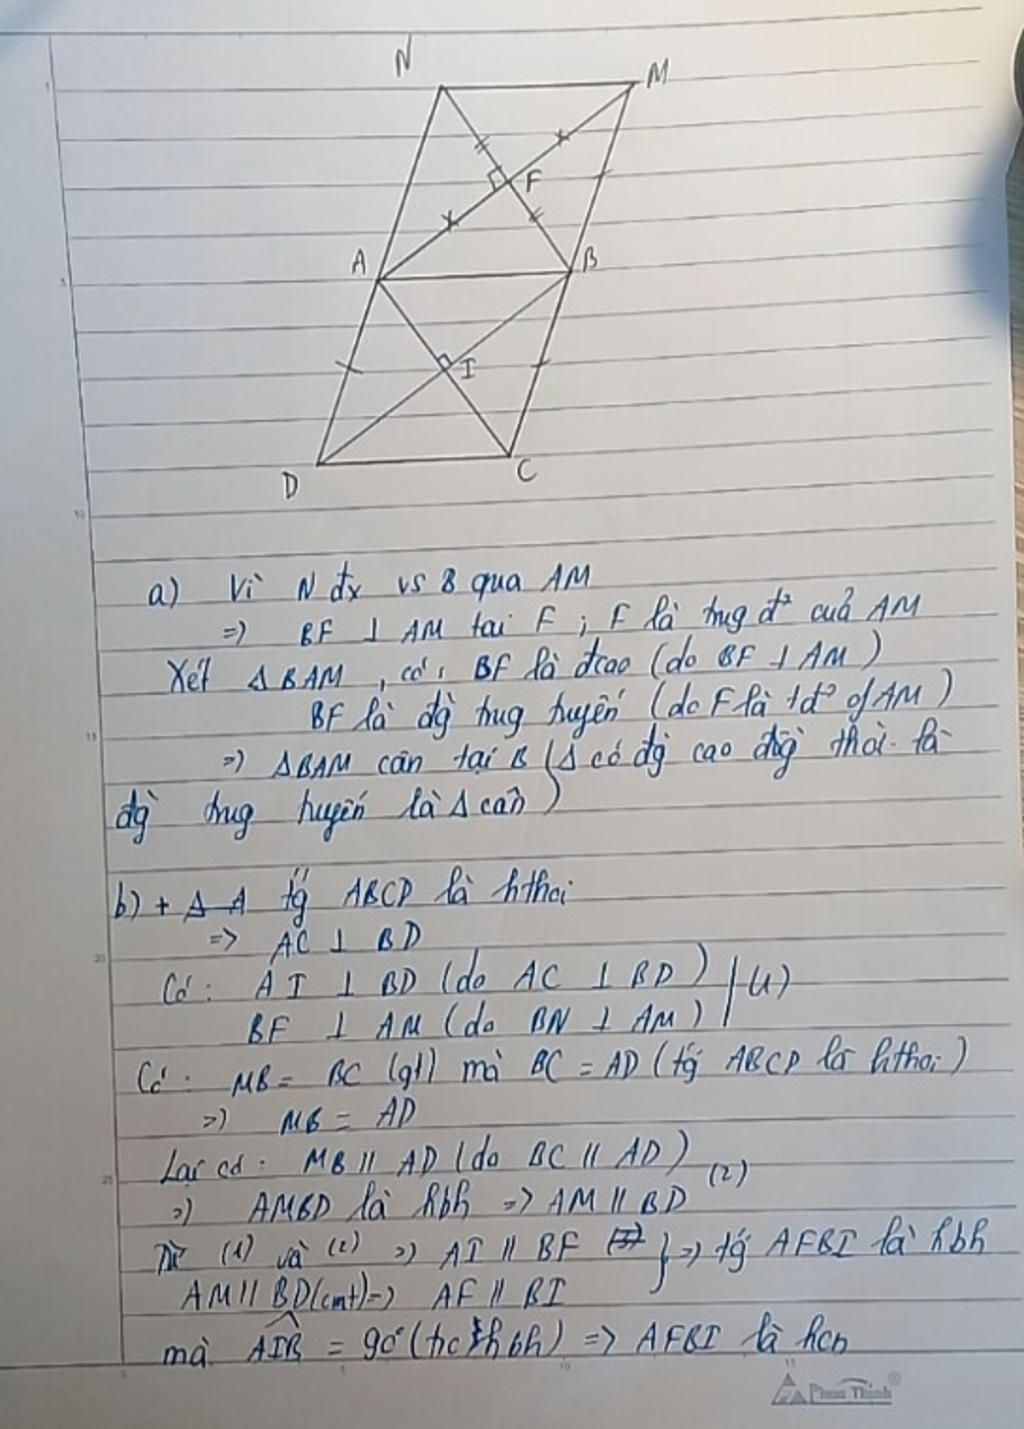 N
M
F
A
B
I
D
C
a) Vì N đx vs B qua AM
=> BF ⊥ AM tại F ; F là trug đ² của AM
Xét Δ BAM , có : BF là đcao (do BF ⊥ AM)
BF là đg trug tuyến (do F là tđ² of AM)
=> Δ BAM cân tại B (Δ có đg cao đồg thời là
đg trug tuyến là Δ cân)
b) + tg ABCD là hthoi
=> AC ⊥ BD
Có : AI ⊥ BD (do AC ⊥ BD) | (1)
BF ⊥ AM (do BN ⊥ AM)
Có : MB = BC (gt) mà BC = AD (tg ABCD là hthoi)
=> MB = AD
Lại có : MB // AD (do BC // AD)
=> AMBD là hbh => AM // BD (2)
Từ (1) và (2) => AI // BF } => tg AFBI là hbh
AM // BD (cmt) => AF // BI
mà AIB = 90° (hbh) => AFBI là hcn
Phan Thịnh